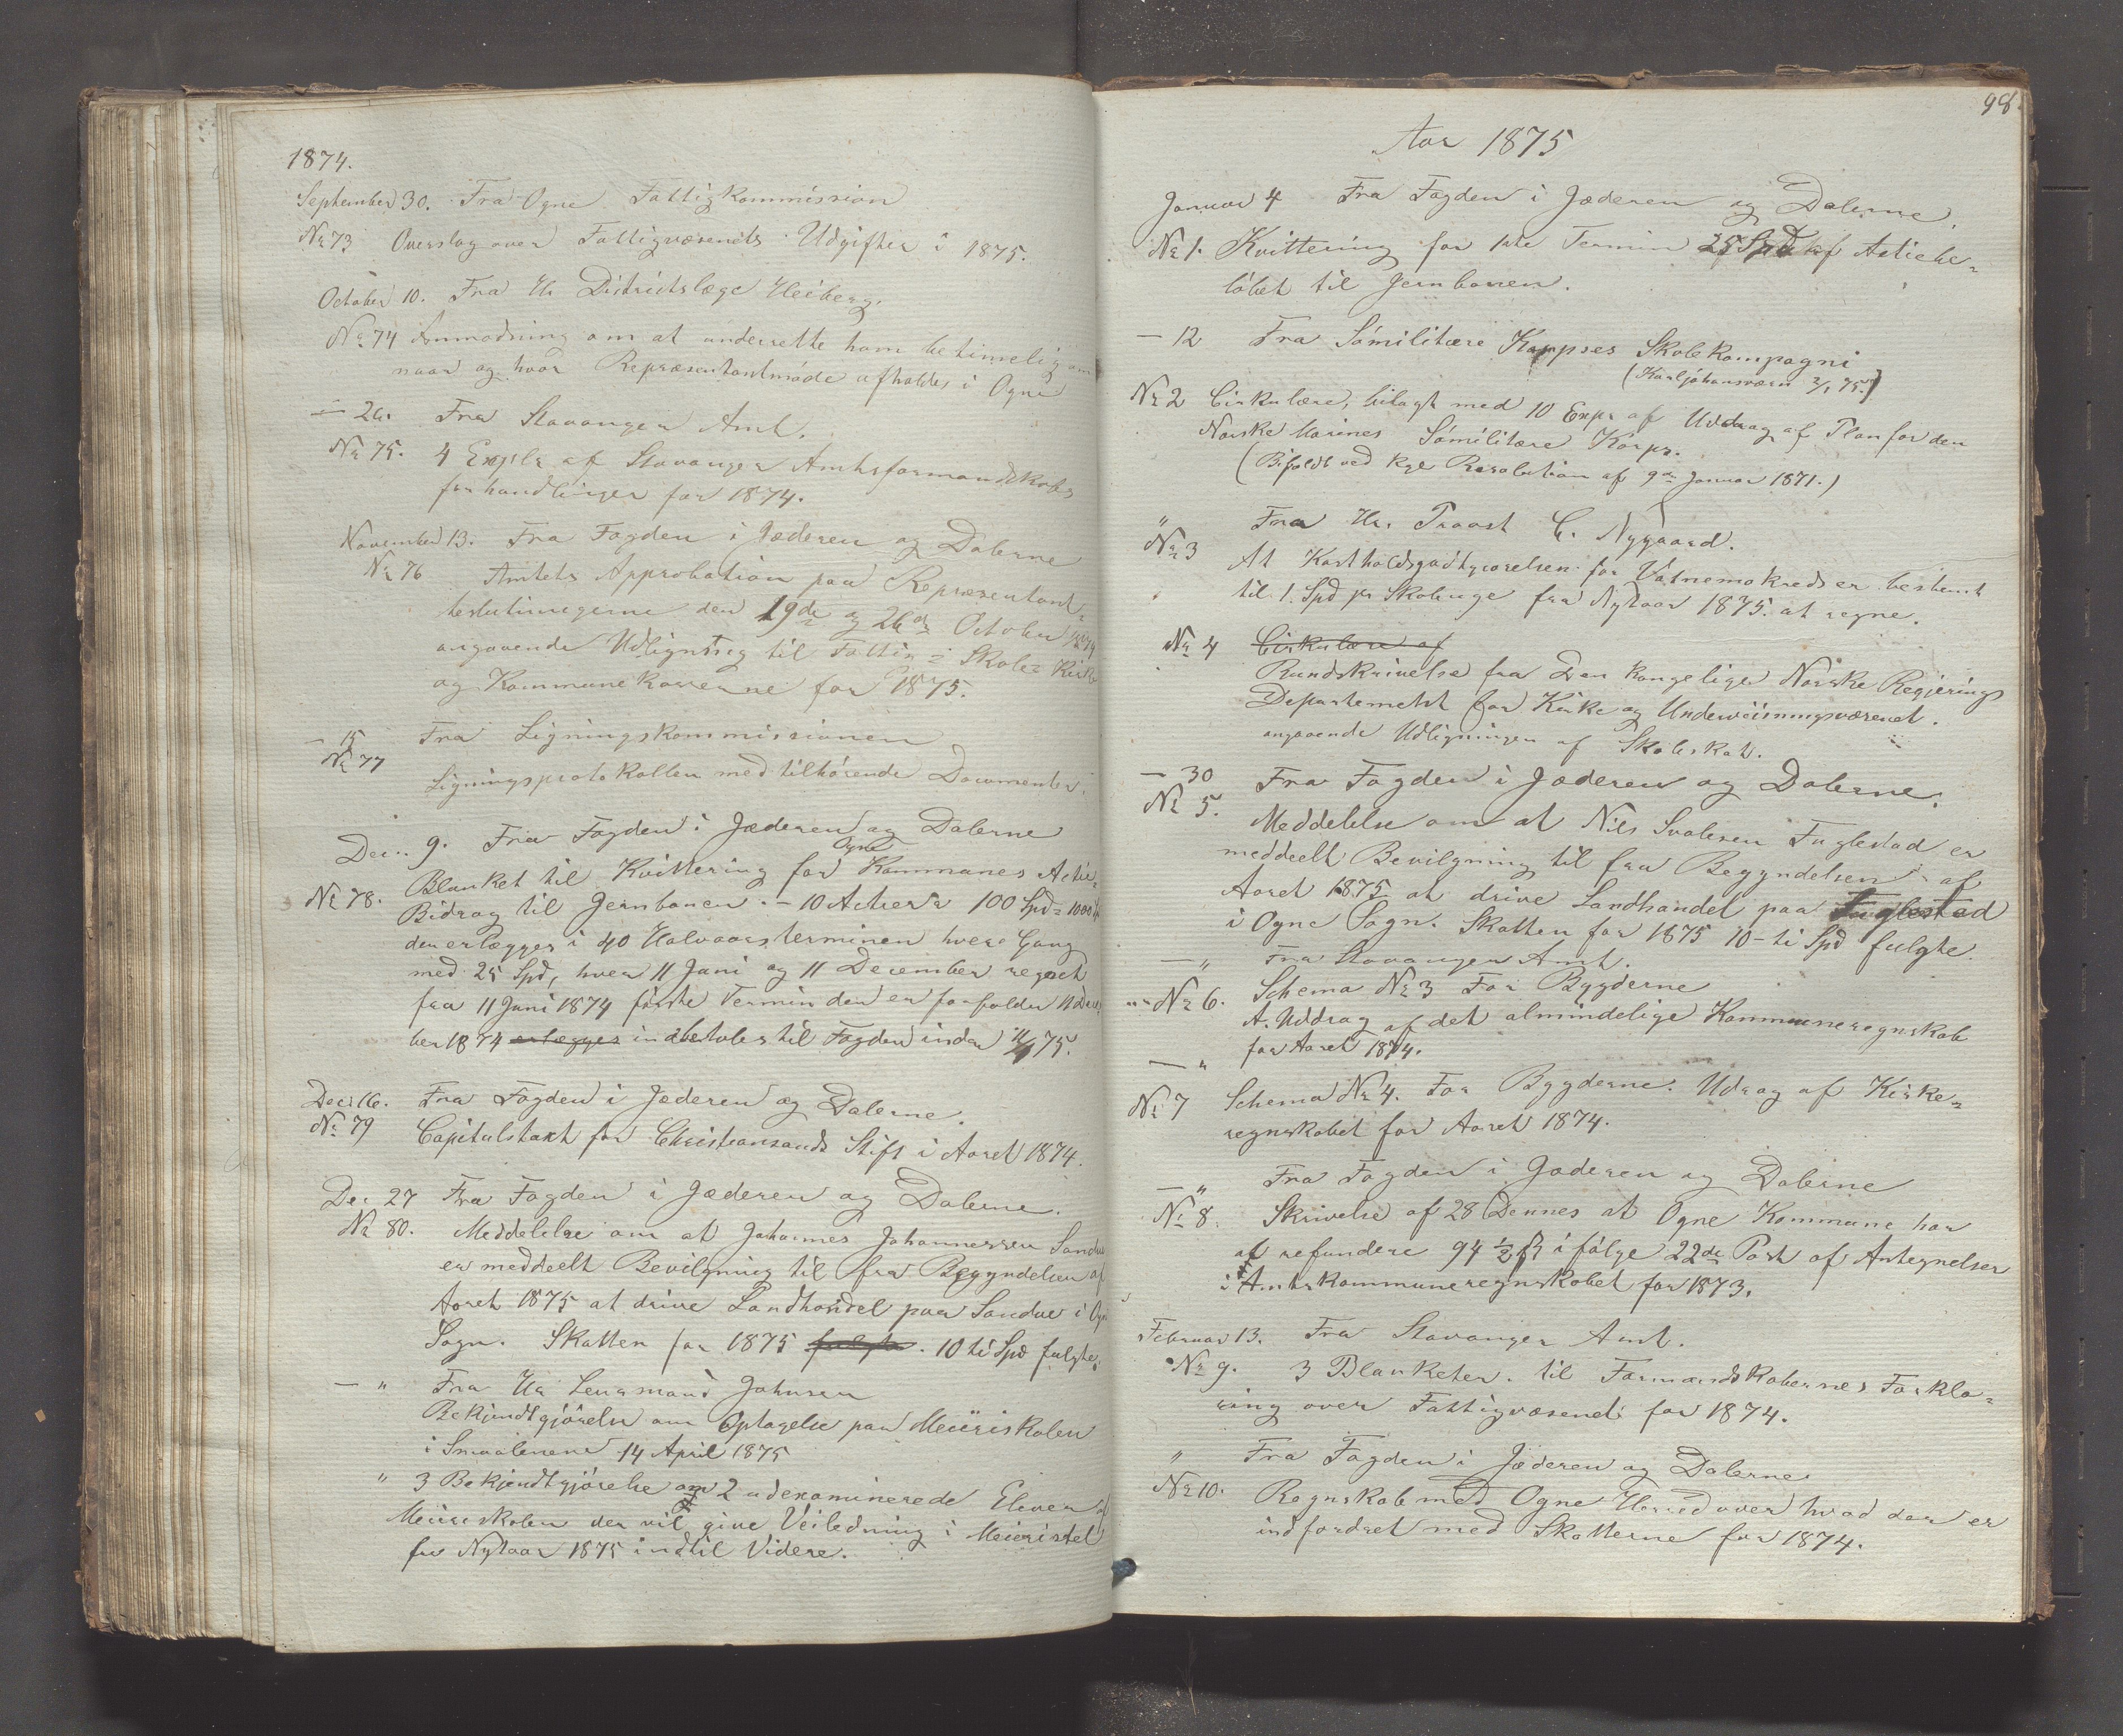 1874.
September 30. Fra Ogne Fattigkommission
No 73 Overslag over Fattigvæsenets Udgifter i 1875.
October 10. Fra Hr Distriktslæge Heiberg.
No 74 Anmodning om at underrette ham betimelig om
naar og hvor Repræsentantmøde afholdes i Ogne
— 26. Fra Stavanger Amt.
No 75. 4 Explr af Stavanger Amtsformandskabs
forhandlinger for 1874.
November 13. Fra Fogden i Jæderen og Dalerne
No 76 Amtets Approbation paa Repræsentant-
beslutningerne den 19de og 26de October 1874
angaaende Udligning til Fattig- Skole- Kirke
og Kommunekasserne for 1875.
— 15 Fra Ligningskommissionen
No 77
Ligningsprotokollen med tilhörende Documenter.
Decr. 9. Fra Fogden i Jæderen og Dalerne
Ogne
No 78. Blanket til Kvittering for Kommunes Actie-
Bidrag til Jernbanen. — 10 Actier a 100 Spd = 1000
der erlægges i 40 Halvaarsterminer hver Gang
med 25 Spd, hver 11 Juni og 11 December regnet
fra 11 Juni 1874 förste Termin der er forfalden 11 Decem-
ber 1874 erlægges indbetales til Fogden inden 11/1 75.
Decr 16. Fra Fogden i Jæderen og Dalerne.
No 79 Capitulstaxt for Christiansands Stift i Aaret 1874.
Dec 27 Fra Fogden i Jæderen og Dalerne.
No 80. Meddelelse om at Johannes Johannessen Sandve
er meddeelt Bevilgning til fra Begyndelsen af
Aaret 1875 at drive Landhandel paa Sandve i Ogne
Sogn. Skatten for 1875 fulgte. 10 ti Spd fulgte.
— " Fra Hr Lensmand Johnsen
Bekjendtgjörelse om Optagelse paa Meieriskolen
i Smaalenene 14 April 1875
" 3 Bekjendtgjörelse om 2 udexaminerede Elever af
Meieriskolen der vil give Veiledning i Meieristel
fra Nytaar 1875 indtil Videre.
98.
Aar 1875
Januar 4 Fra Fogden i Jæderen og Dalerne.
No 1. Kvittering for 1ste Termin 25 Spd af Actiebe-
löbet til Jernbanen.
— 12 Fra Sömilitære Korpses Skolekompagni
(Karljohansværn 2/1 75.)
No 2 Cirkulære, bilagt med 10 Expr af Uddrag af Plan for den
Norske Marines Sömilitære Korps.
(Bifaldt ved Kgl Resolution af 9de Januar 1871.)
" Fra Hr. Provst C. Nygaard.
No 3 At Kostholdsgodtgjorelsen for Vatnemokreds er bestemt
til 1. Spd pr Skoleuge fra Nytaar 1875. at regne.
No 4 Cirkulære af
Rundskrivelse fra Den kongelige Norske Regjerings
Departemetet for Kirke og Underviisningsvæsenet.
angaaende Udligningen af Skoleskat.
— 30 Fra Fogden i Jæderen og Dalerne.
No 5. Meddelelse om at Nils Svalesen Fuglestad er
meddeelt Bevilgning til fra Begyndelsen af
Aaret 1875 at drive Landhandel paa Fuglestad
i Ogne Sogn. Skatten for 1875 10-ti Spd fulgte.
— " Fra Stavanger Amt.
" No 6. Schema No 3 For Bygderne
A. Uddrag af det almindelige Kommuneregnskab
for Aaret 1874.
— "
No 7 Schema No 4. For Bygderne. Udrag af Kirke-
regnskabet for Aaret 1874.
— " Fra Fogden i Jæderen og Dalerne
No 8. Skrivelse af 28 Dennes at Ogne Kommune har
at refundere 94 ½ ß ifölge 22de Post af Antegnelser
i Amtskommuneregnskabet for 1873.
Februar 13. Fra Stavanger Amt.
No 9. 3 Blanketer. til Formandskabernes Forkla-
ring over Fattigvæsenet for 1874.
" Fra Fogden i Jæderen og Dalerne
No 10. Regnskab med Ogne Herred over hvad der er
indfordret med Skatterne for 1874.